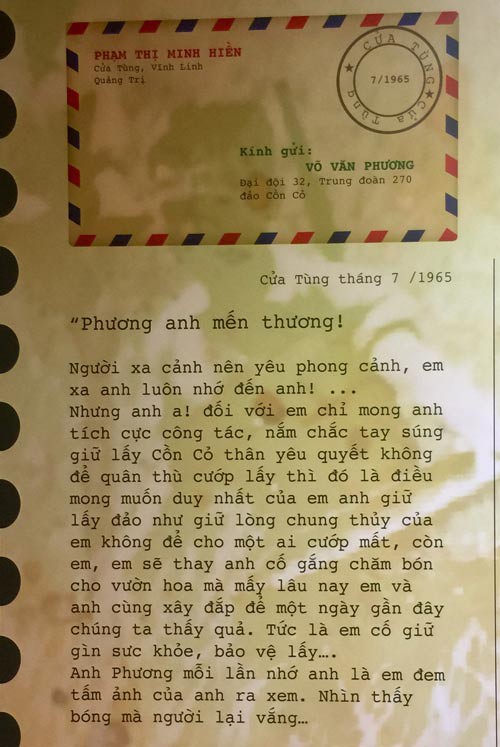 PHẠM THỊ MINH HIỀN
Cửa Tùng, Vĩnh Linh
Quảng Trị
CỬA TÙNG
7/1965
Cửa Tùng
Kính gửi:
VÕ VĂN PHƯƠNG
Đại đội 32, Trung đoàn 270
đảo Cồn Cỏ
Cửa Tùng tháng 7 /1965
“Phương anh mến thương!
Người xa cảnh nên yêu phong cảnh, em
xa anh luôn nhớ đến anh! ...
Nhưng anh ạ! đối với em chỉ mong anh
tích cực công tác, nắm chắc tay súng
giữ lấy Cồn Cỏ thân yêu quyết không
để quân thù cướp lấy thì đó là điều
mong muốn duy nhất của em anh giữ
lấy đảo như giữ lòng chung thủy của
em không để cho một ai cướp mất, còn
em, em sẽ thay anh cố gắng chăm bón
cho vườn hoa mà mấy lâu nay em và
anh cùng xây đắp để một ngày gần đây
chúng ta thấy quả. Tức là em cố giữ
gìn sưc khỏe, bảo vệ lấy….
Anh Phương mỗi lần nhớ anh là em đem
tấm ảnh của anh ra xem. Nhìn thấy
bóng mà người lại vắng…